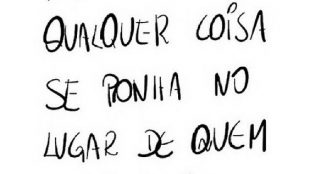 QUALQUER COISA
SE PONHA NO
LUGAR DE QUEM